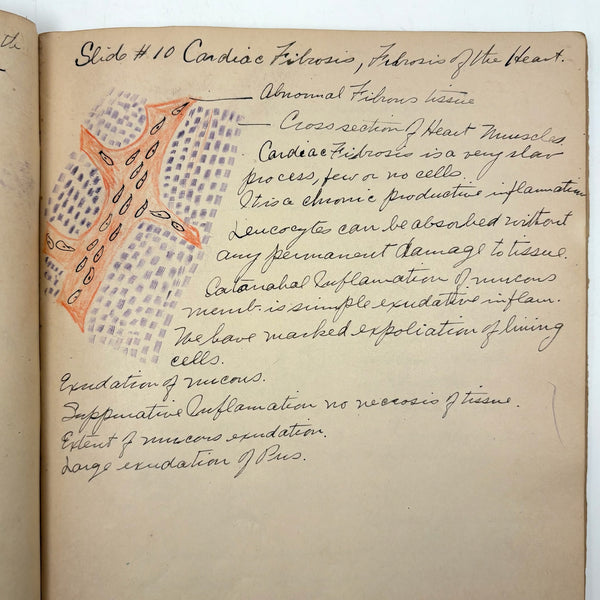 th
Slide #10 Cardiac Fibrosis, Fibrosis of the Heart.
Abnormal Fibrous tissue
Cross section of Heart Muscles.
Cardiac Fibrosis is a very slow
process, few or no cells.
It is a chronic productive inflamation
Leucocytes can be absorbed without
any permanent damage to tissue.
Catarrahal Inflamation of mucous
memb. is simple exudative inflam.
We have marked exfoliation of lining
cells.
Exudation of mucous.
Suppurative Inflamation no necrosis of tissue.
Extent of mucous exudation.
Large exudation of Pus.